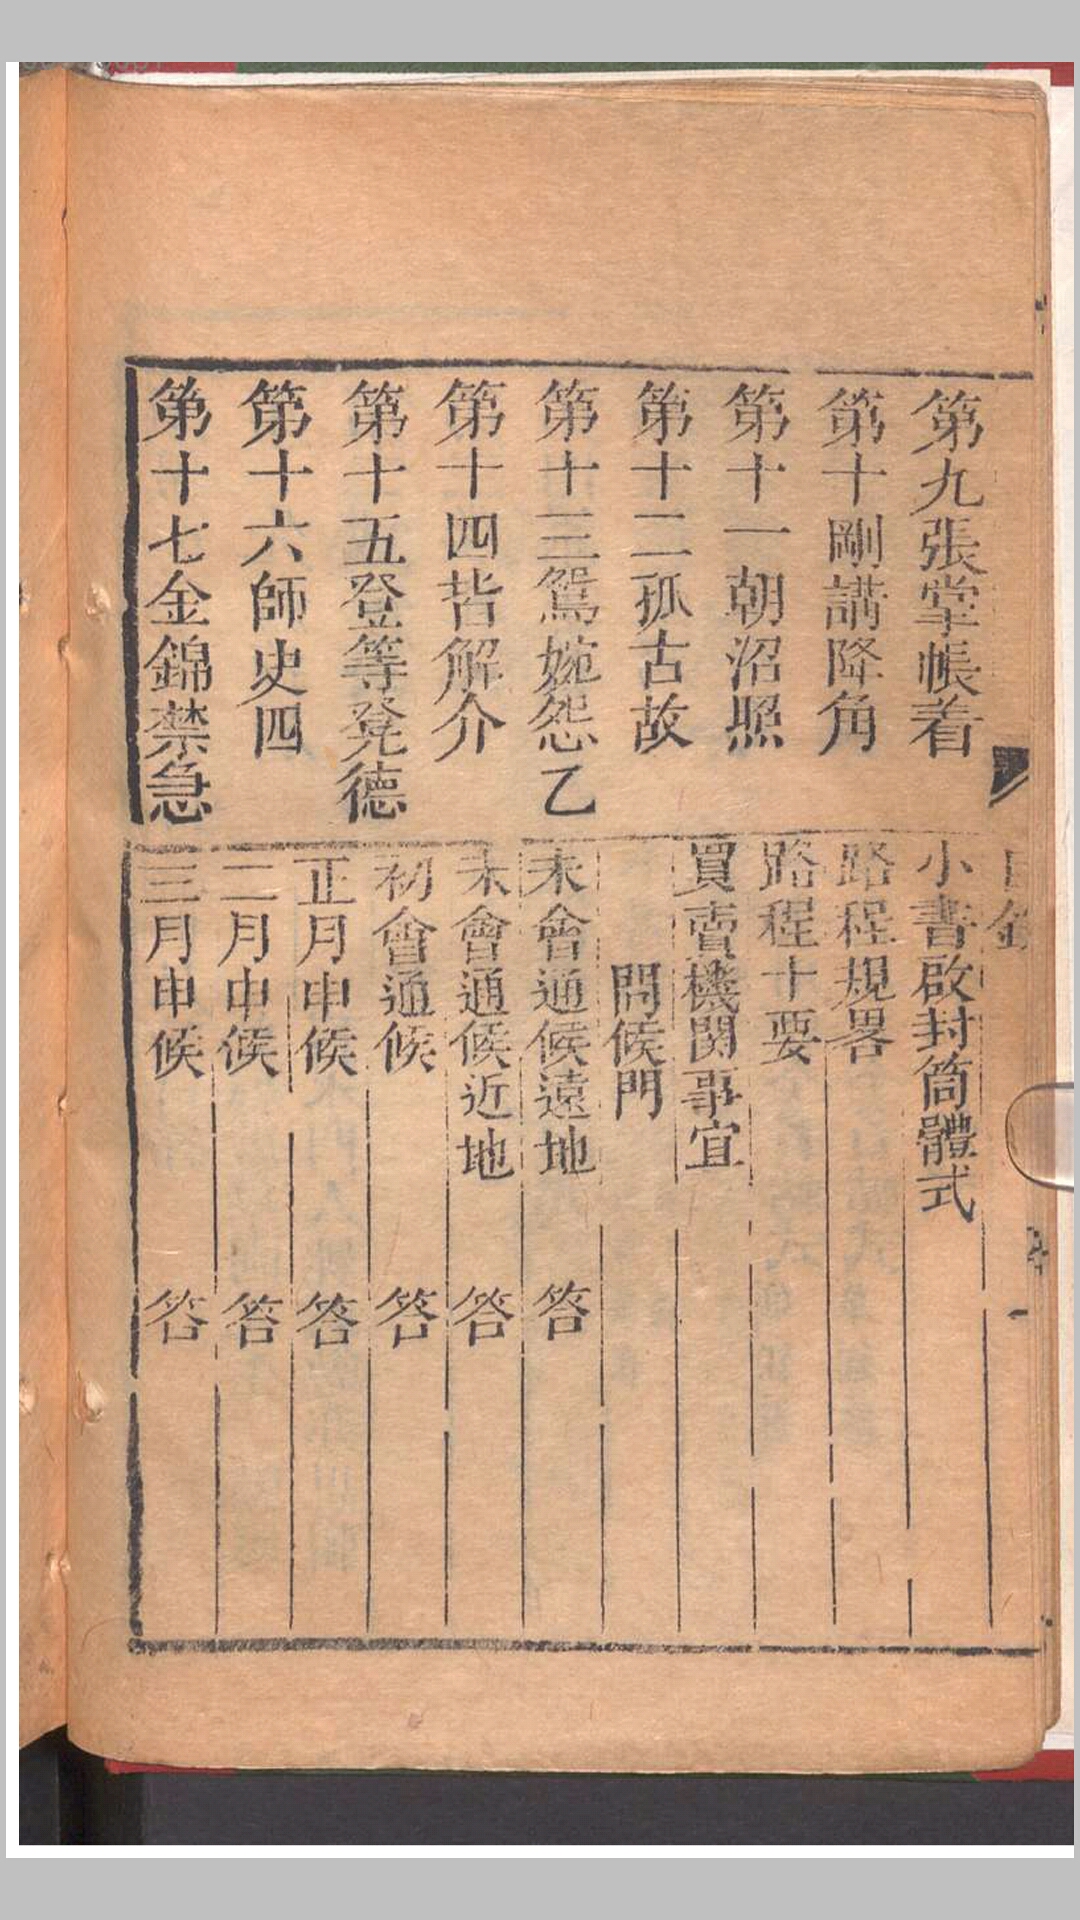 第九張掌帳着
第十剛講降角
第十一朝沼照
第十二孤古故
第十三鴛婉怨乙
第十四皆解介
第十五登等凳德
第十六師史四
第十七金錦禁急
目錄
小書啟封筒體式
路程規畧
路程十要
買賣機関事宜
問候門
未會通候遠地 答
未會通候近地 答
初會通候 答
正月申候 答
二月申候 答
三月申候 答